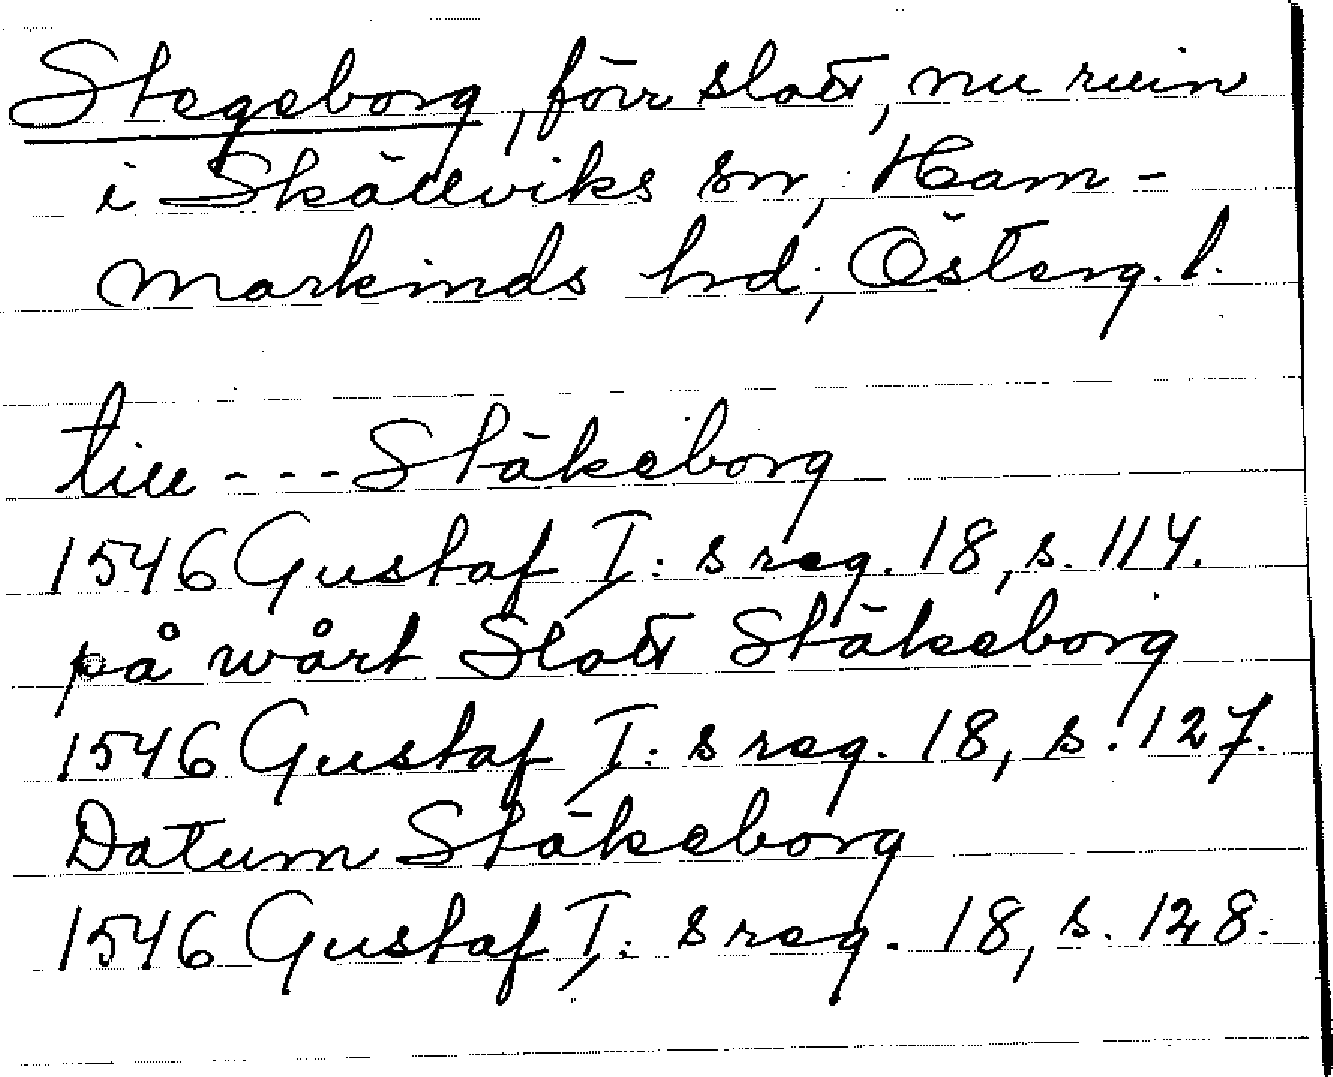 Stegeborg, förr slott, nu ruin
i Skällviks sn, Ham-
markinds hd, Österg. l.
till --- Stäkeborg
1546 Gustaf I:s reg. 18, s. 114.
på wårt Slott Stäkeborg
1546 Gustaf I:s reg. 18, s. 127.
Datum Stäkeborg
1546 Gustaf I:s reg. 18, s. 128.